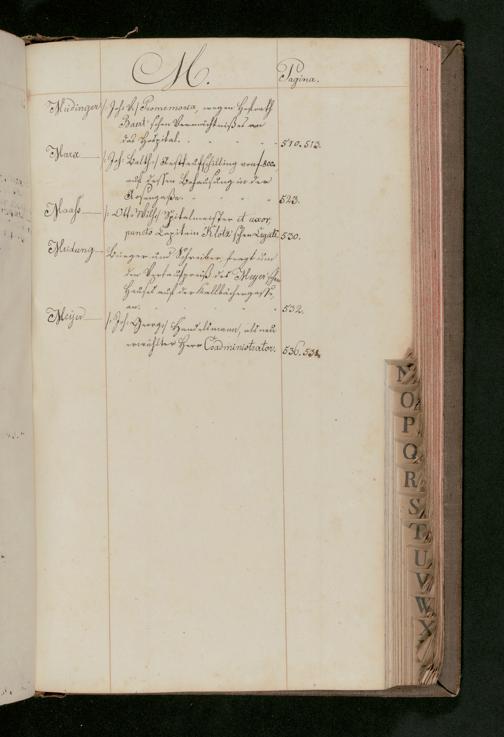 M.
Pagina.
Müdinger /: Joh: V:/ Promemoria, wegen Hofrath
Baur'schen Vermächtnißes an
das Hospital. 510. 513.
Marx /: Joh: Balth:/ Restkaufschilling von f 800.
auf dessen Behausung in der
Rosengaße. 523.
Maaß /: Otto Wilh:/ Spitalmeister et uxor
puncto Capitain Klotz'schen Legati. 530.
Meidung Bürger und Schreiber, fragt um
den Verkaufpreiß des Meyer'schen
Haußes auf der Kallbächergasse,
an. 532.
Meÿer /: Joh: Georg:/ Handelsmann, als neu
erwählter Herr Coadministrator. 536. 538.
N
O
P
Q
R
S
T
U
V
W
X